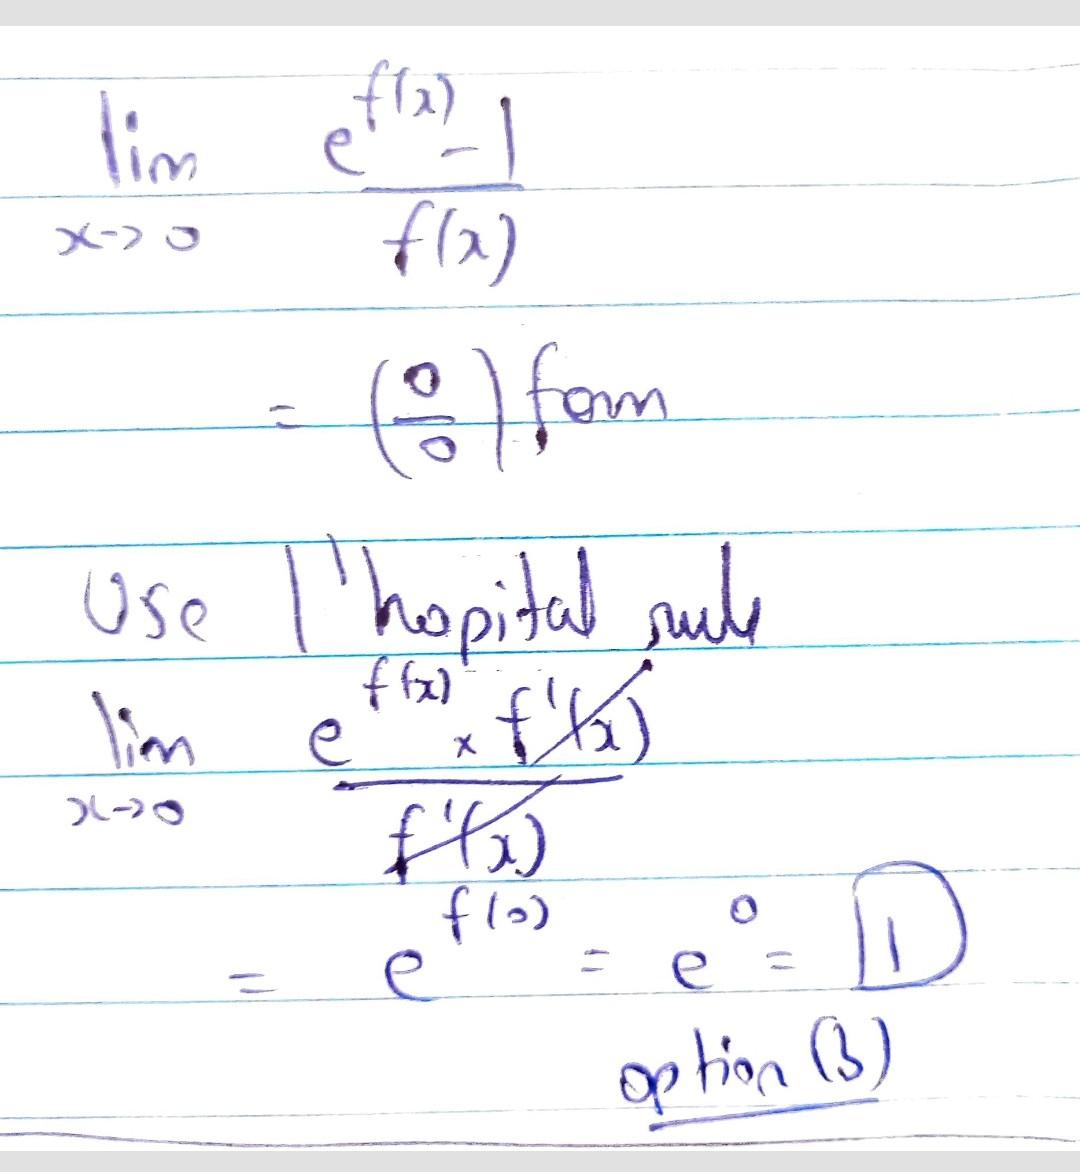 lim e^{f(x)} - 1
x->0 f(x)
= (0/0) form
Use l'hopital rule
lim e^{f(x)} × f'(x)
x->0 f'(x)
= e^{f(0)} = e^0 = 1
option (B)